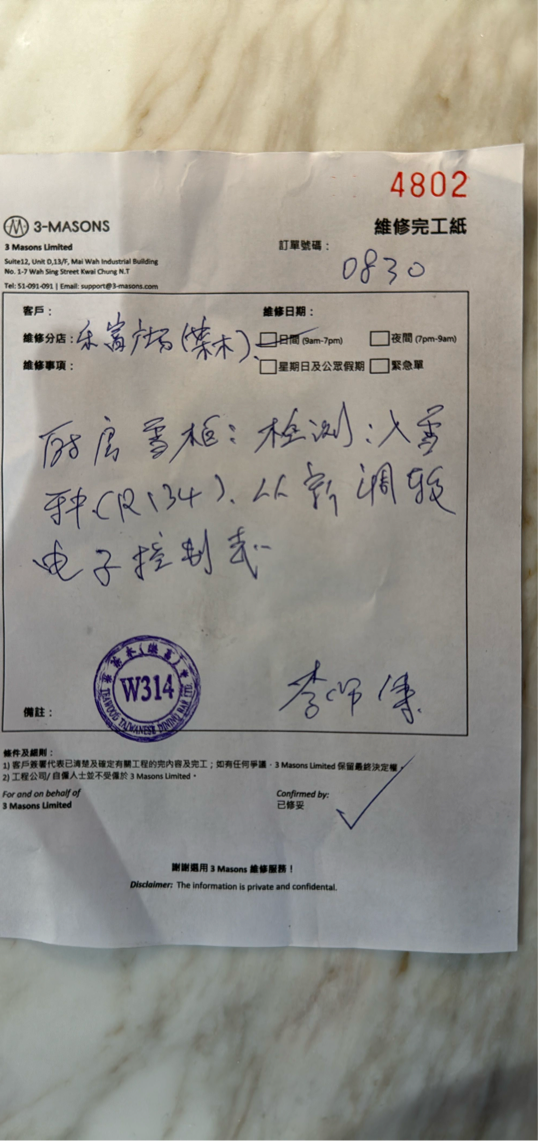 4802
3-MASONS
維修完工紙
3 Masons Limited
訂單號碼：
0830
Suite12, Unit D,13/F, Mai Wah Industrial Building
No. 1-7 Wah Sing Street Kwai Chung N.T
Tel: 51-091-091 | Email: support@3-masons.com
客戶：
維修日期：
維修分店：禾富广场(茶木)
日間 (9am-7pm)
夜間 (7pm-9am)
維修事項：
星期日及公眾假期
緊急單
厨房雪柜：检测：入雪
种(R134)、从新调较
电子控制
W314
TEAWOOD TAIWANESE DINING BAR LTD
李师傅
備註：
條件及細則：
1) 客戶簽署代表已清楚及確定有關工程的完內容及完工；如有任何爭議，3 Masons Limited 保留最終決定權。
2) 工程公司/ 自僱人士並不受僱於 3 Masons Limited。
For and on behalf of
3 Masons Limited
Confirmed by:
已修妥
謝謝選用 3 Masons 維修服務！
Disclaimer: The information is private and confidental.